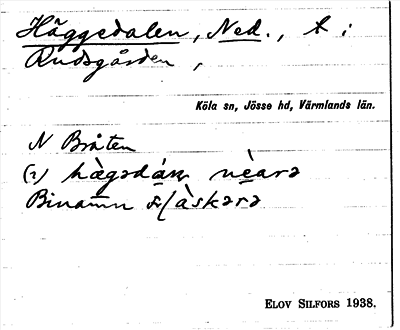 Häggedalen, Ned., t i
Rudsgården,
Köla sn, Jösse hd, Värmlands län.
N Bråten
(2) hàgədán nèarə
Binamn àskərə
ELOV SILFORS 1938.